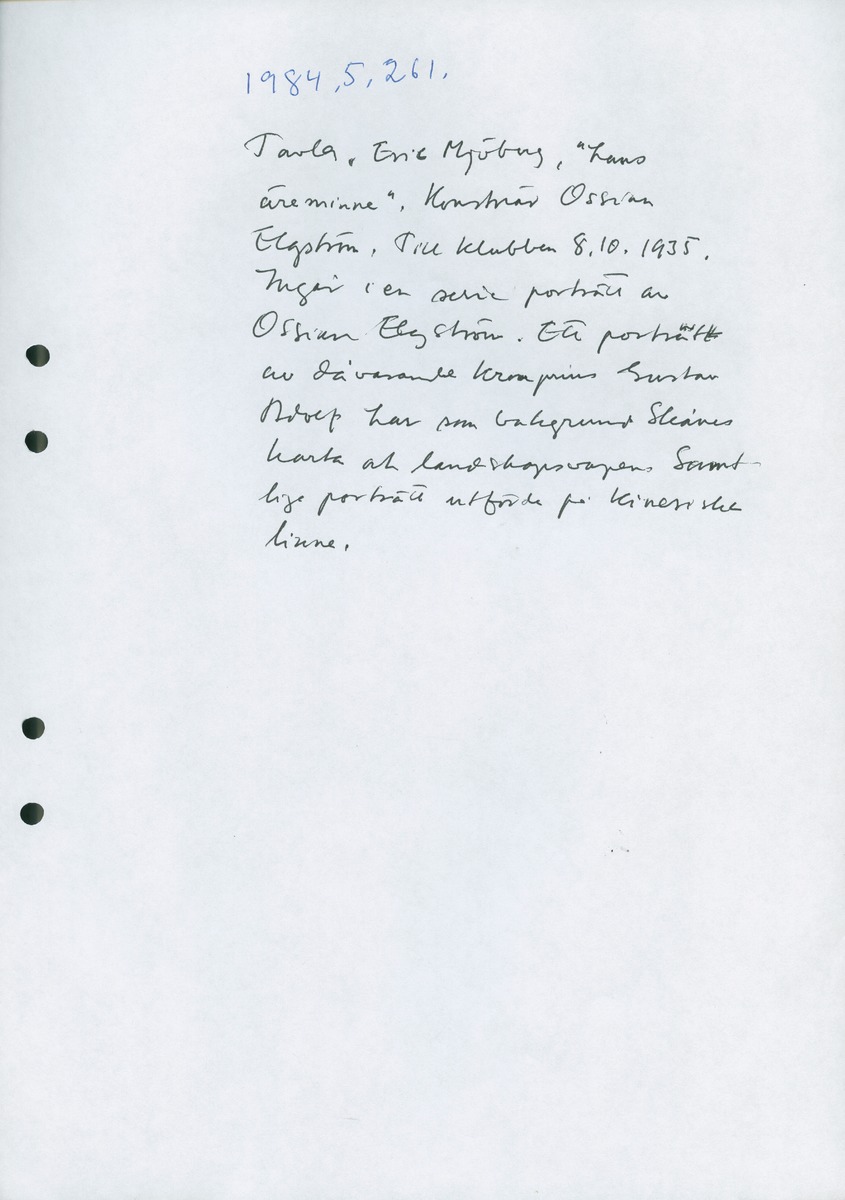 1984,5,261.
Tavla, Eric Mjöberg, "hans
äreminne", Konstnär Ossian
Elgström, Till klubben 8.10. 1935.
Ingår i en serie porträtt av
Ossian Elgström. Ett porträtt
av dåvarande kronprins Gustav
Adolf har som bakgrund Skånes
karta och landskapsvapen. Samt-
liga porträtt utförda på kinesiska
linne.